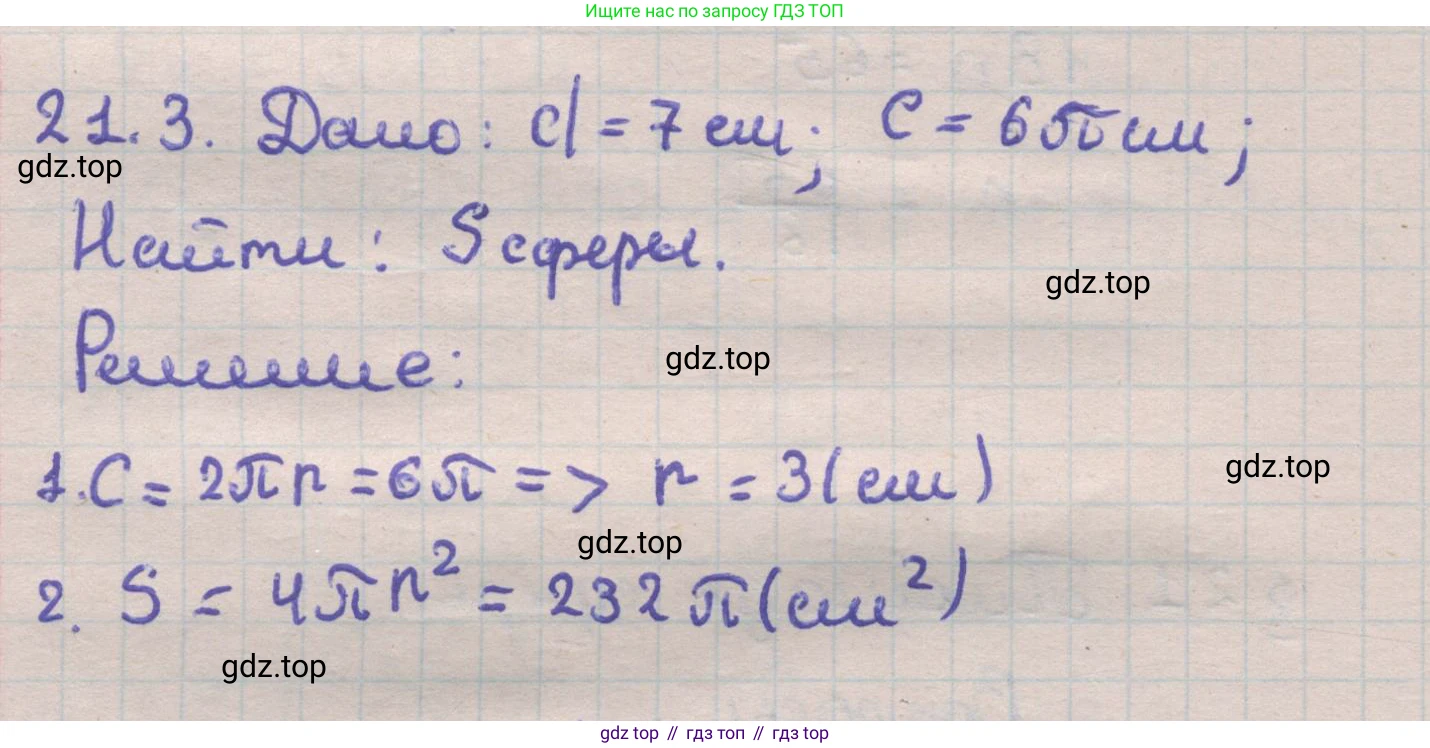 Ищите нас по запросу ГДЗ ТОП
21.3. Дано: d = 7 см; C = 6π см;
gdz.top
Найти: S сферы.
gdz.top
Решение:
gdz.top
1. C = 2πr = 6π => r = 3 (см)
gdz.top
gdz.top
2. S = 4πr² = 232π (см²)
gdz.top
gdz top // гдз топ // гдз top